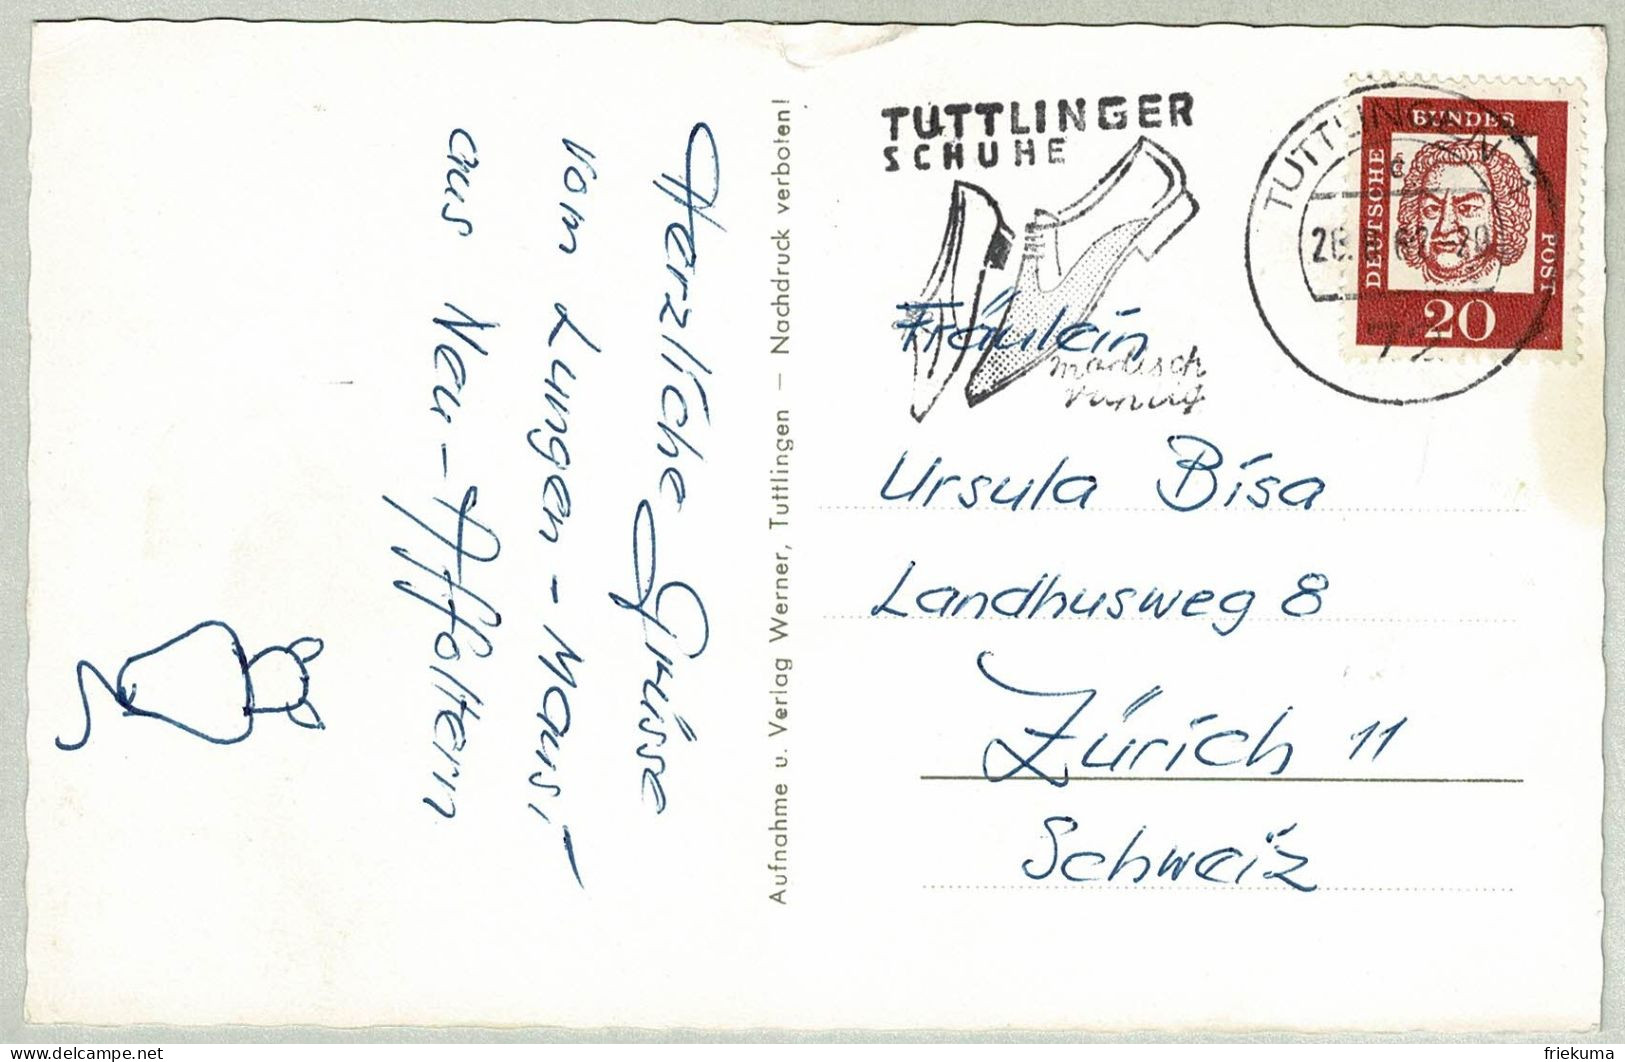 Herzliche Grüsse
vom Lungen-Mausi
aus Neu-Affoltern
Aufnahme u. Verlag Werner, Tuttlingen — Nachdruck verboten!
TUTTLINGER
SCHUHE
modisch
TUTTLINGEN
DEUTSCHE
BUNDES
POST
20
Fräulein
Ursula Bisa
Landhusweg 8
Zürich 11
Schweiz
friekuma